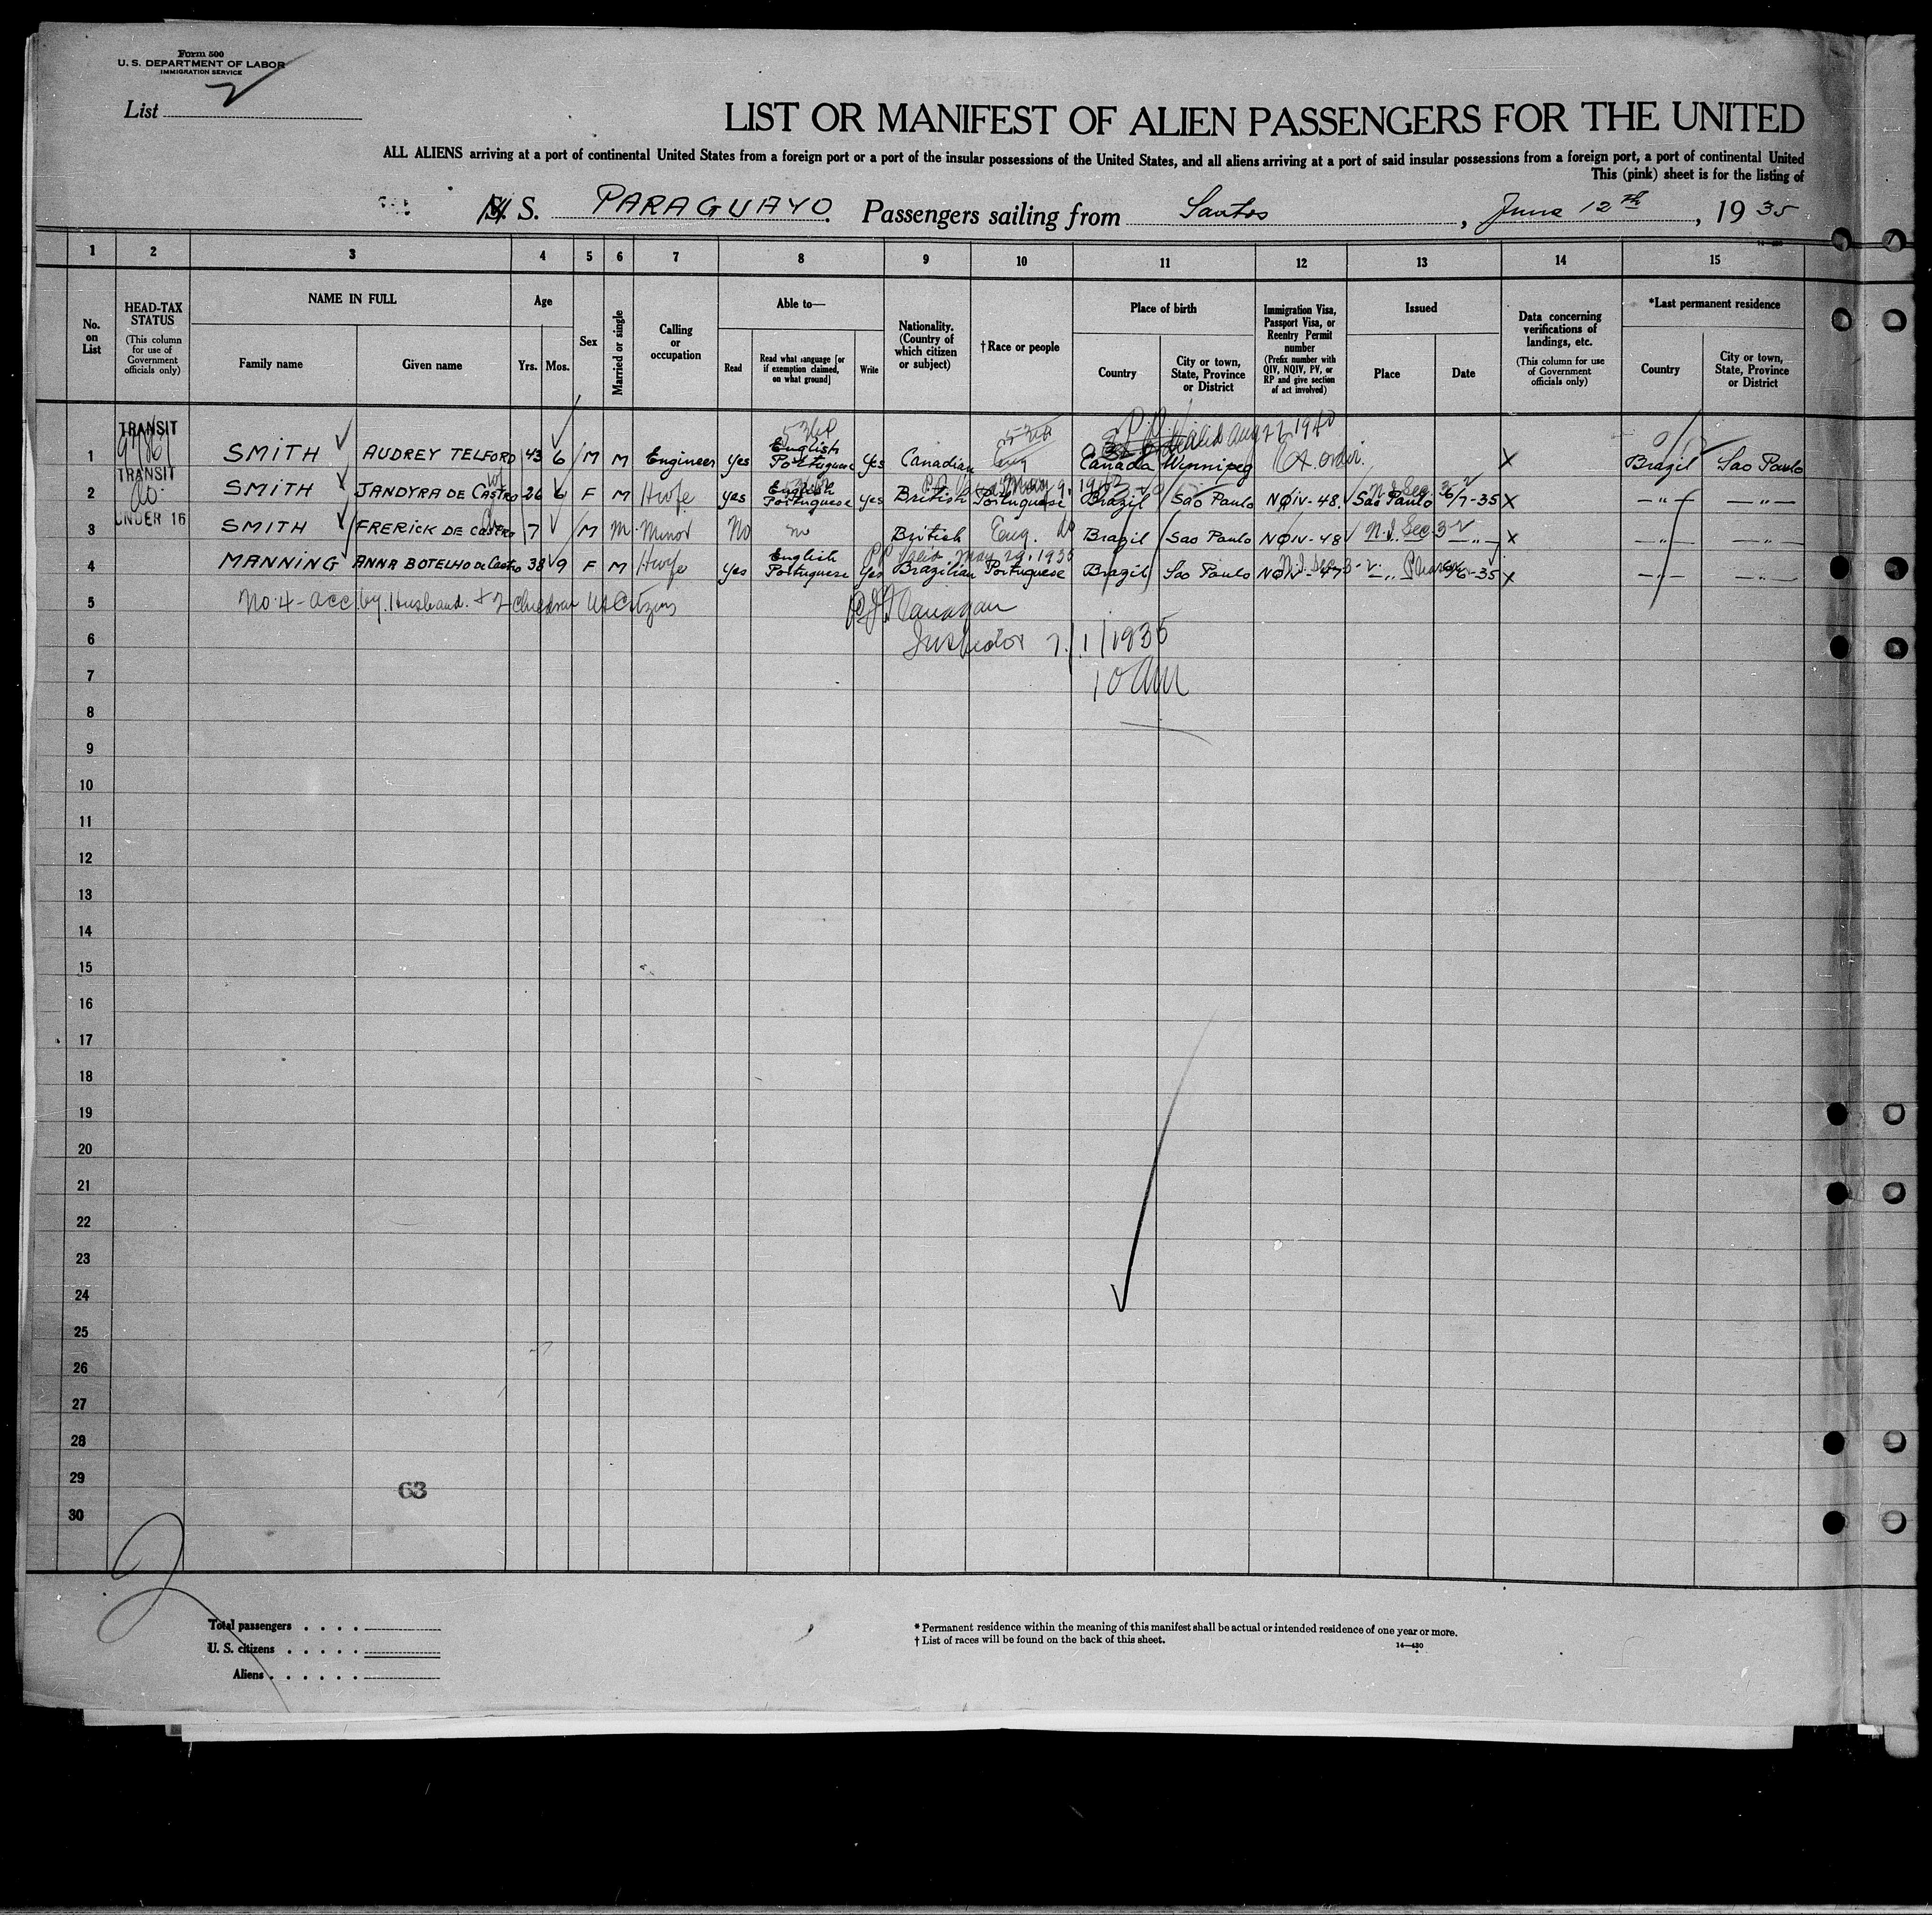 Form 500
U. S. DEPARTMENT OF LABOR
IMMIGRATION SERVICE
List 2
LIST OR MANIFEST OF ALIEN PASSENGERS FOR THE UNITED
ALL ALIENS arriving at a port of continental United States from a foreign port or a port of the insular possessions of the United States, and all aliens arriving at a port of said insular possessions from a foreign port, a port of continental United
This (pink) sheet is for the listing of
S. PARAGUAYO. Passengers sailing from Santos, June 12th, 1935
14—430
1 2 3 4 5 6 7 8 9 10 11 12 13 14 15
No. on List
HEAD-TAX STATUS
(This column for use of Government officials only)
NAME IN FULL
Family name
Given name
Age
Yrs.
Mos.
Sex
Married or single
Calling or occupation
Able to—
Read
Read what language [or if exemption claimed, on what ground]
Write
Nationality. (Country of which citizen or subject)
†Race or people
Place of birth
Country
City or town, State, Province or District
Immigration Visa, Passport Visa, or Reentry Permit number
(Prefix number with QIV, NQIV, PV, or RP and give section of act involved)
Issued
Place
Date
Data concerning verifications of landings, etc.
(This column for use of Government officials only)
*Last permanent residence
Country
City or town, State, Province or District
TRANSIT
5360 5360 valid Aug 27 1940
1 SMITH AUDREY TELFORD 43 6 M M Engineer yes English Portuguese yes Canadian Eng Canada Winnipeg Ex. order. X Brazil Sao Paulo
TRANSIT
Do.
2 SMITH JANDYRA DE CASTRO 26 6 F M Hwfe yes English Portuguese yes British Portuguese Brazil Sao Paulo NQIV-48. Sao Paulo 6/7-35 X —"— —"—
UNDER 16
3 SMITH FRERICK DE CASTRO 7 M M Minor No no British Eng. Brazil Sao Paulo NQIV-48 N.I. Sec 3-2 —"— X —"— —"—
PP Valid May 29, 1935
4 MANNING ANNA BOTELHO DE Castro 38 9 F M Hwfe yes English Portuguese yes Brazilian Portuguese Brazil Sao Paulo NQIV-47 —"— 6/6-35 X —"— —"—
5 No. 4 - acc by Husband. + 2 children US Citizens
Flanagan
6 Inspector 7/1/1935
7 10 AM
8
9
10
11
12
13
14
15
16
17
18
19
20
21
22
23
24
25
26
27
28
29
63
30
2
Total passengers
U. S. citizens
Aliens
* Permanent residence within the meaning of this manifest shall be actual or intended residence of one year or more.
† List of races will be found on the back of this sheet.
14—430